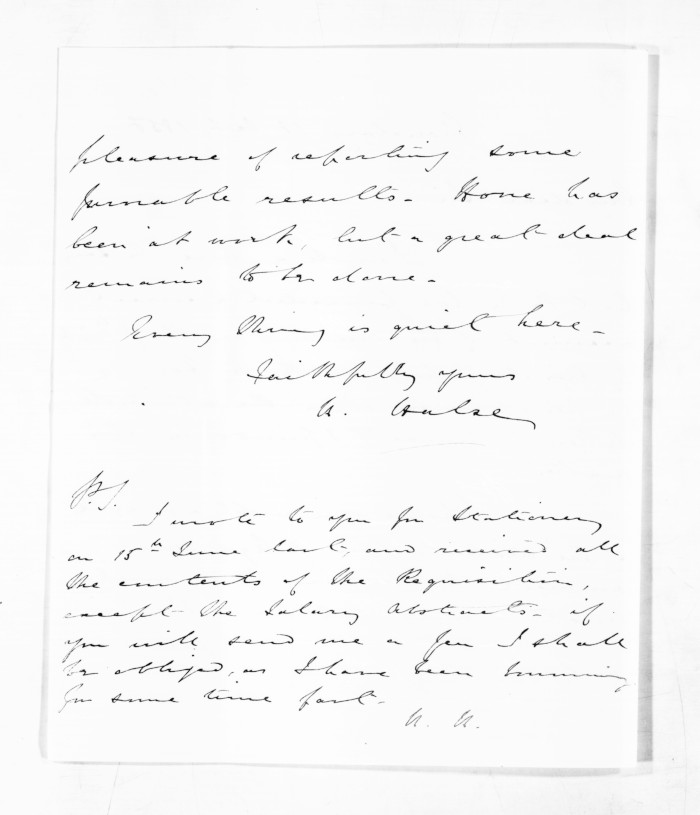 pleasure of reporting some
favorable results. Hone has
been at work, but a great deal
remains to be done.
Every thing is quiet here.
Faithfully yours
H. Halse
P.S.
I wrote to you for Stationery
on 15th June last, and received all
the contents of the Requisition,
except the Salary Abstracts - if
you will send me a few I shall
be obliged, as I have been
for some time past.
H. H.